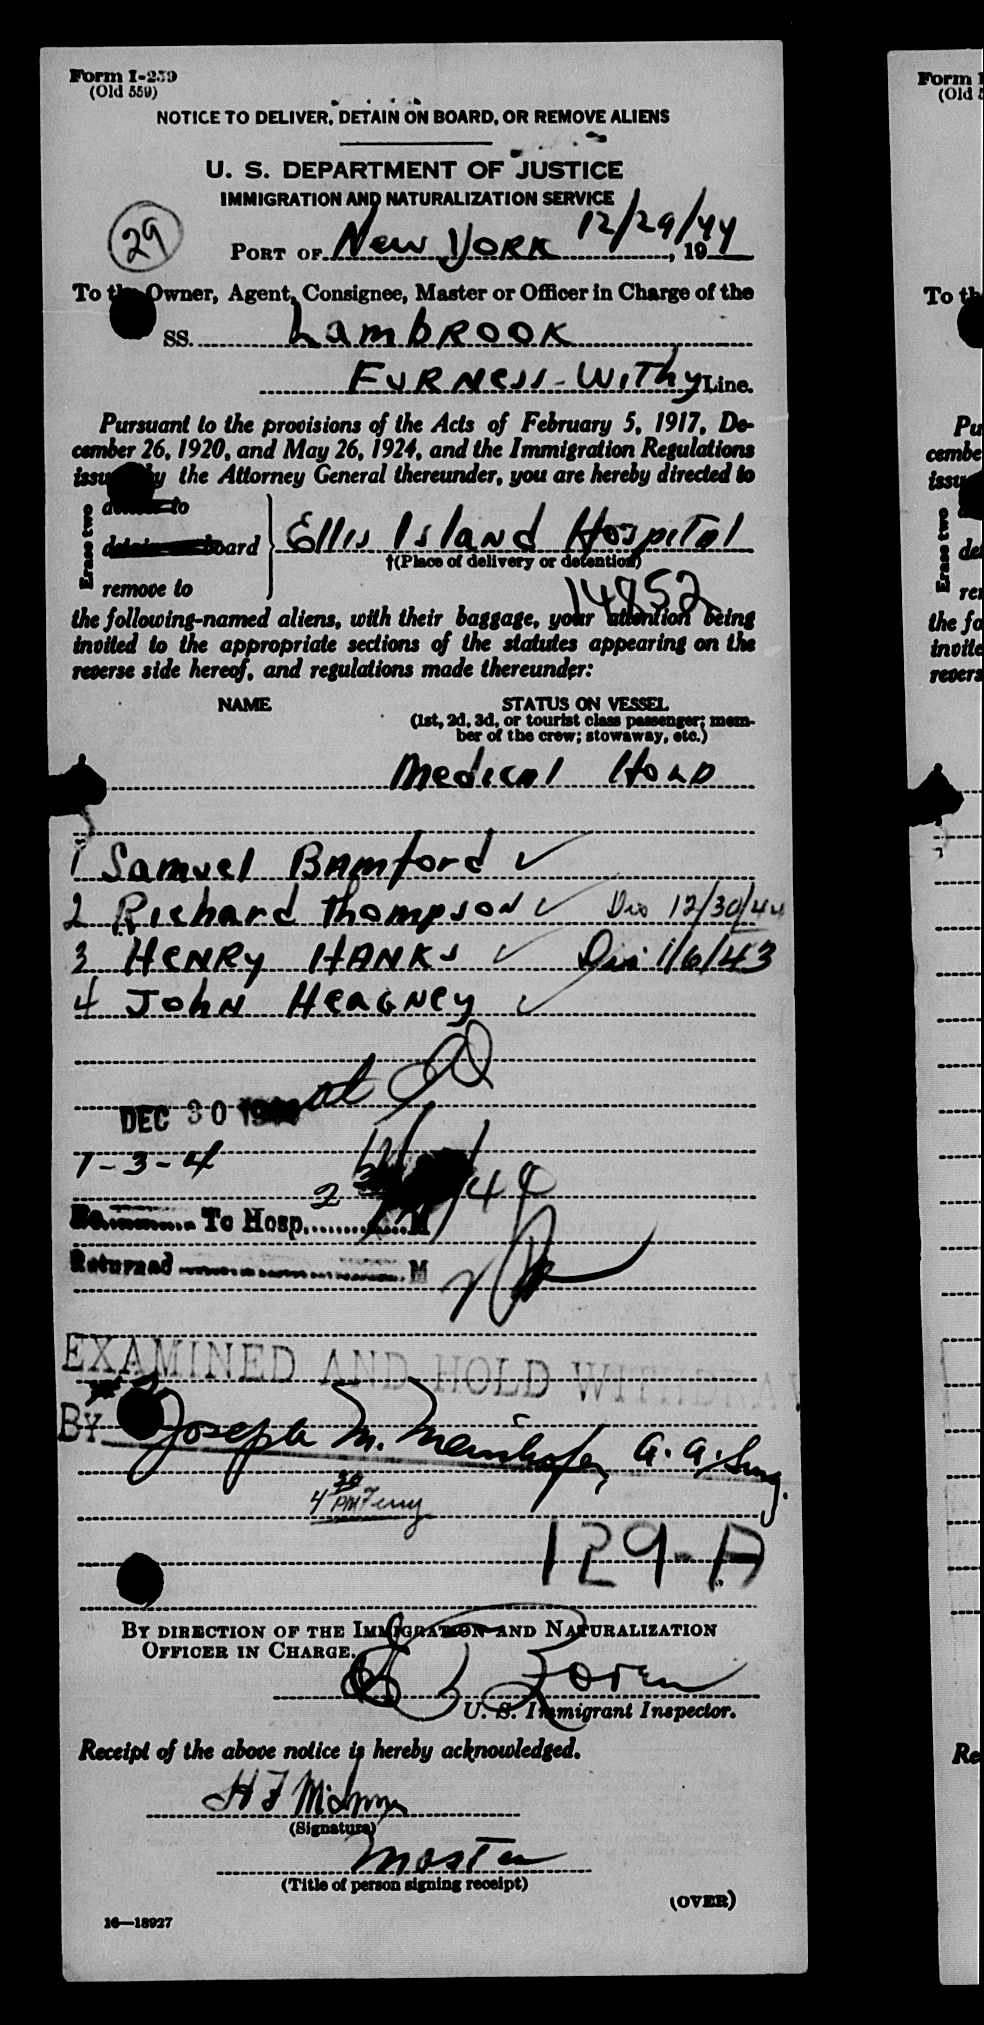 Form I-259
(Old 559)
NOTICE TO DELIVER, DETAIN ON BOARD, OR REMOVE ALIENS
U. S. DEPARTMENT OF JUSTICE
IMMIGRATION AND NATURALIZATION SERVICE
29
PORT OF New York 12/29/44, 19
To the Owner, Agent, Consignee, Master or Officer in Charge of the
SS. LambRook
Furness-Withy Line.
Pursuant to the provisions of the Acts of February 5, 1917, De-
cember 26, 1920, and May 26, 1924, and the Immigration Regulations
issued by the Attorney General thereunder, you are hereby directed to
Erase two
deliver to
detain on board
remove to
Ellis Island Hospital
†(Place of delivery or detention)
14852
the following-named aliens, with their baggage, your attention being
invited to the appropriate sections of the statutes appearing on the
reverse side hereof, and regulations made thereunder:
NAME STATUS ON VESSEL
(1st, 2d, 3d, or tourist class passenger; mem-
ber of the crew; stowaway, etc.)
Medical Hold
1 Samuel Bamford ✓
2 Richard Thompson ✓ Dis 12/30/44
3 Henry Hanks ✓ Dis 1/6/43
4 John Heagney ✓
DEC 30
1-3-4
To Hosp. M
Returned M
EXAMINED AND HOLD WITHDRAW
By Joseph M. Meinhofer, a. a. Surg.
4 30 PM Ferry
129-A
BY DIRECTION OF THE IMMIGRATION AND NATURALIZATION
OFFICER IN CHARGE.
Zoren
U. S. Immigrant Inspector.
Receipt of the above notice is hereby acknowledged.
H F
(Signature)
Master
(Title of person signing receipt)
(OVER)
16—18927
Form
(Old
To th
Pu
cembe
issu
Erase two
de
re
the fo
invite
revers
Re